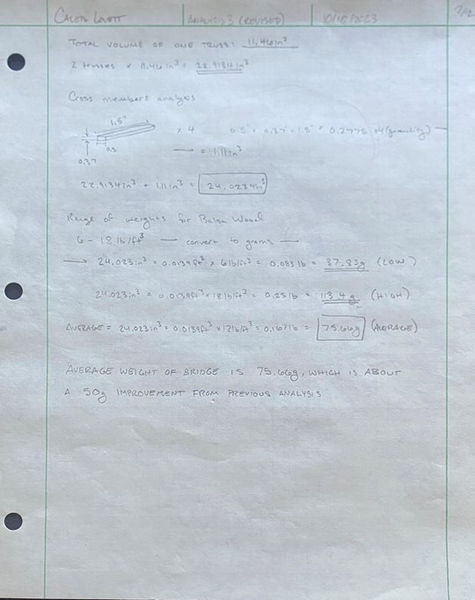 CALEB LOVETT ANALYSIS 3 (REVISED) 10/18/2023
TOTAL VOLUME OF ONE TRUSS: 11.46in³
2 trusses × 11.46in³ = 22.9134in³
Cross members analysis
1.5"
0.5
0.37
× 4 0.5 × 0.37 × 1.5 = 0.2775 ×4(quantity)
→ = 1.11in³
22.9134in³ + 1.11in³ = 24.0234in³
Range of weights for Balsa Wood
6 - 18 lb/ft³ → convert to grams →
→ 24.023in³ = 0.0139ft³ × 6lb/ft³ = 0.083lb = 37.83g (LOW)
24.023in³ = 0.0139ft³ × 18lb/ft³ = 0.25lb = 113.4g (HIGH)
AVERAGE = 24.023in³ = 0.0139ft³ × 12lb/ft³ = 0.167lb = 75.66g (AVERAGE)
AVERAGE WEIGHT OF BRIDGE IS 75.66g, WHICH IS ABOUT
A 50g IMPROVEMENT FROM PREVIOUS ANALYSIS